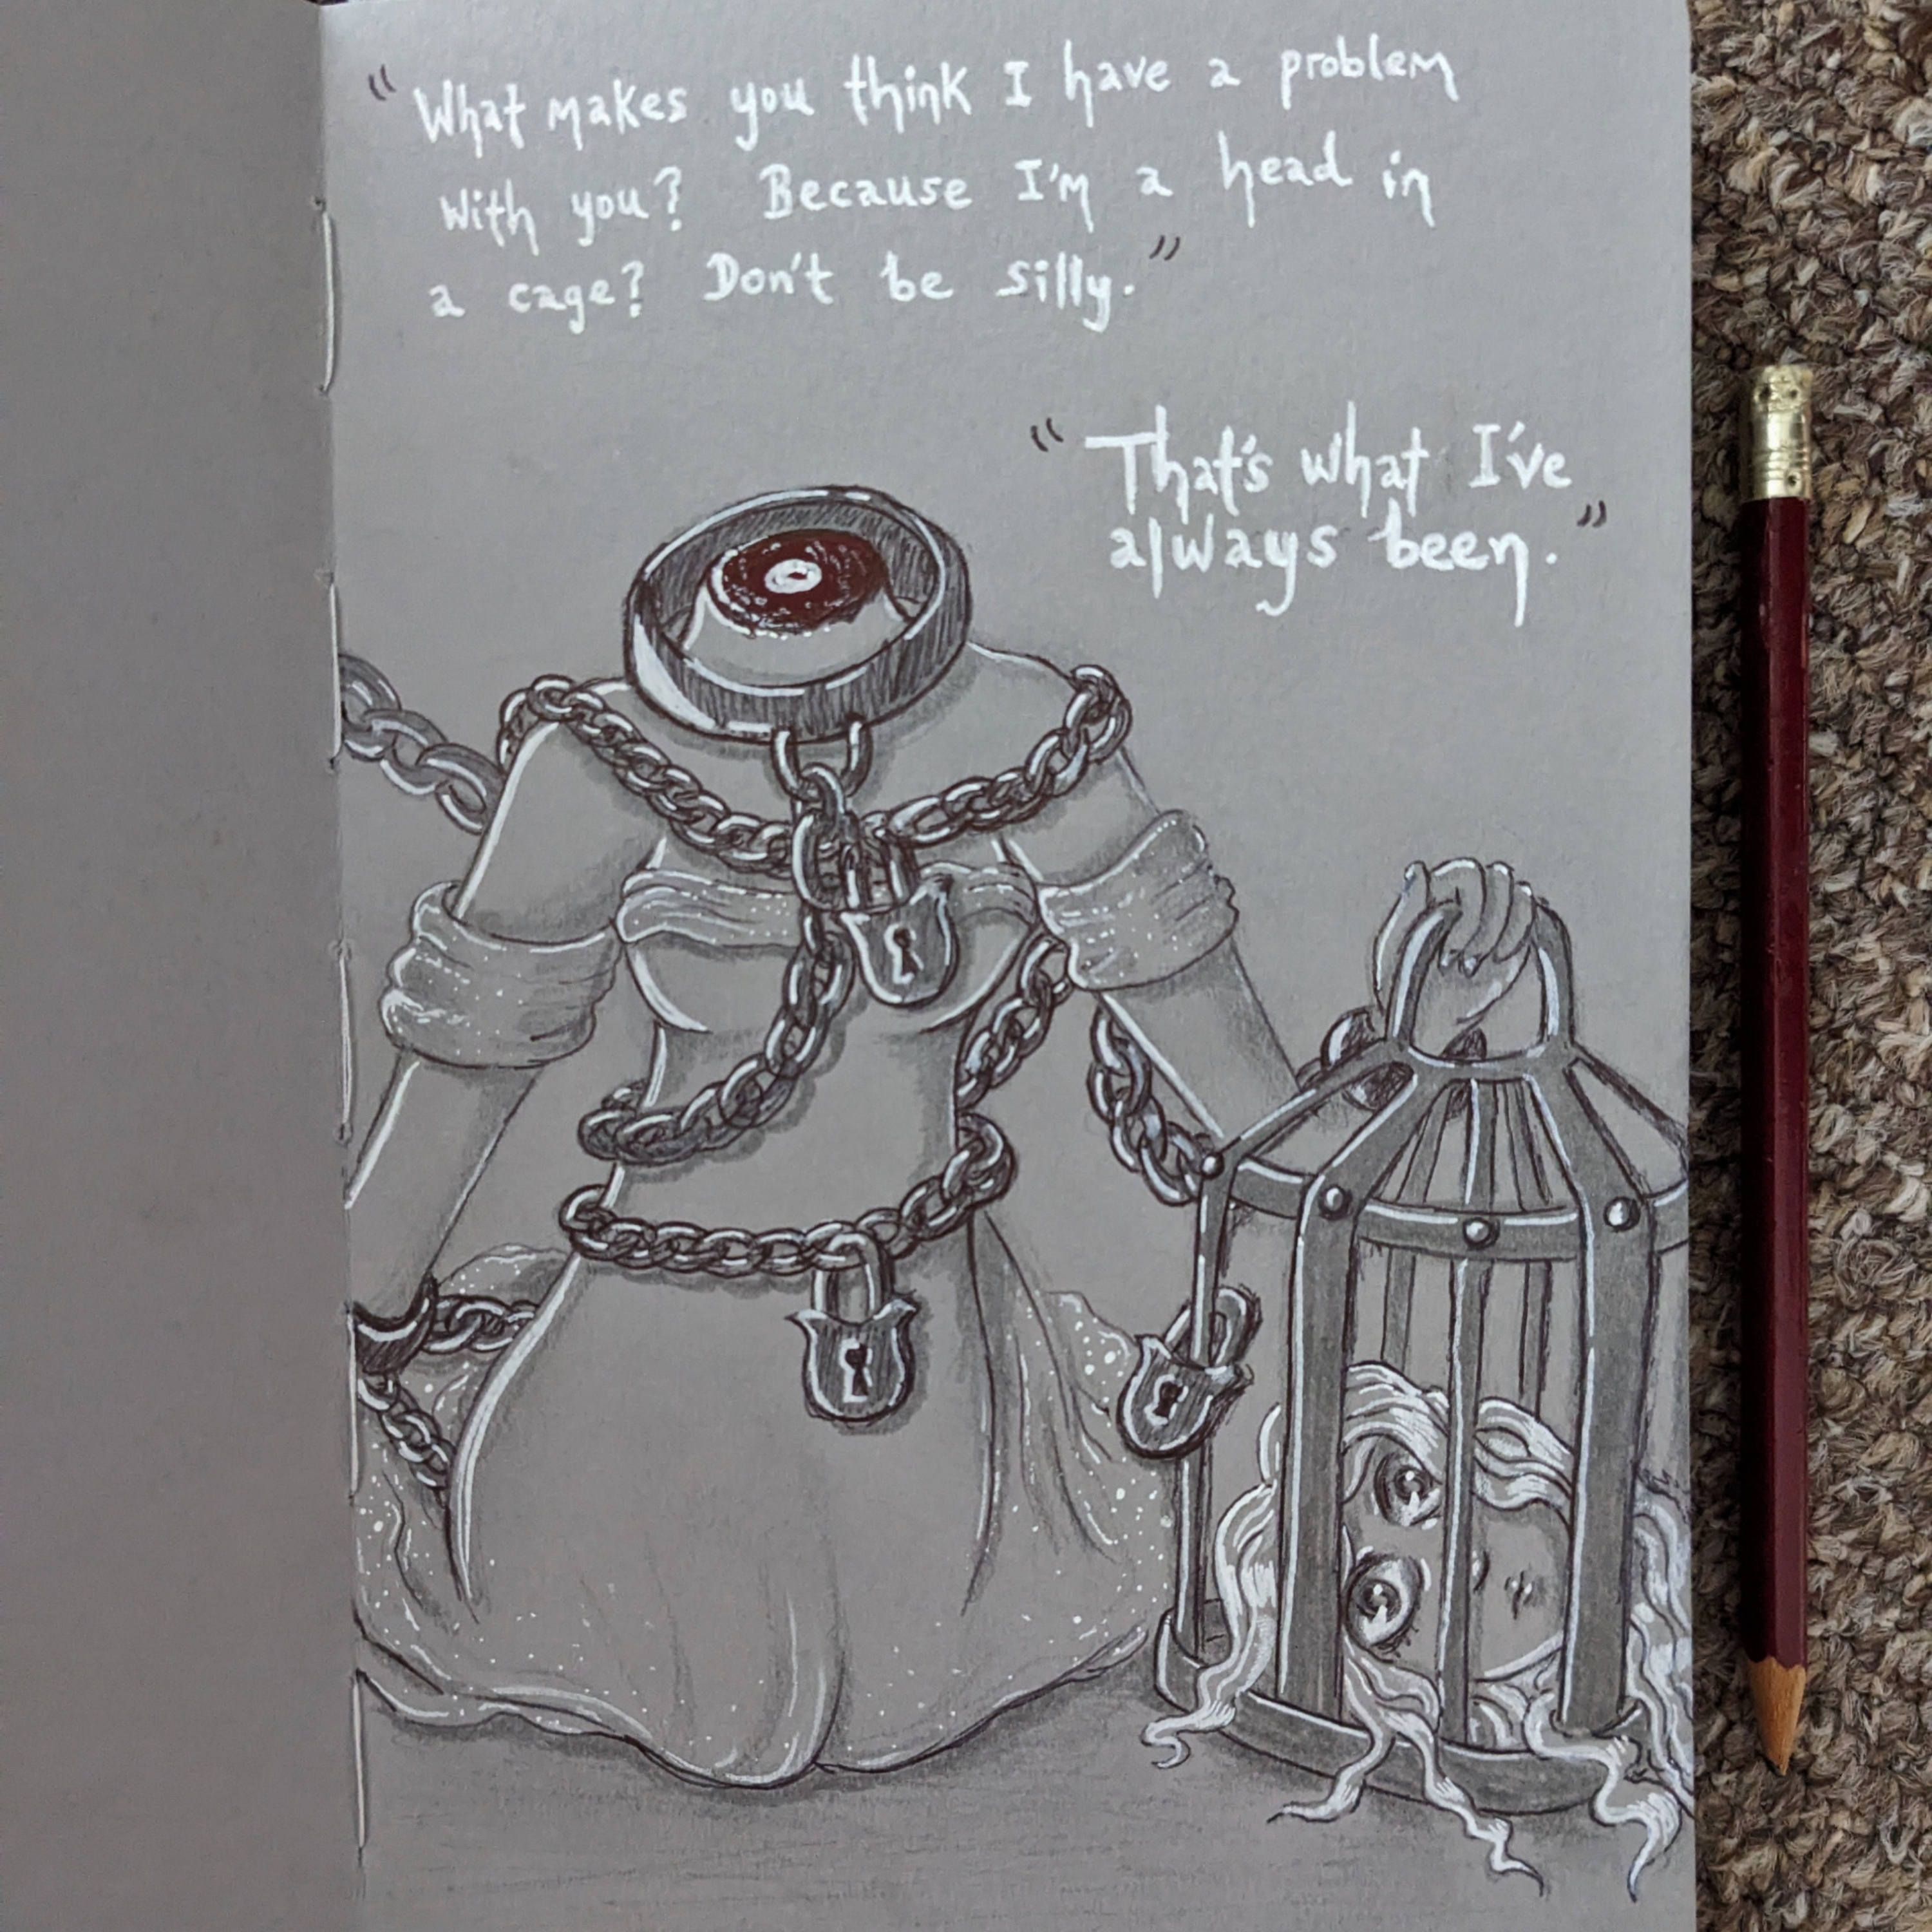 "What makes you think I have a problem
with you? Because I'm a head in
a cage? Don't be silly."
"That's what I've
always been."